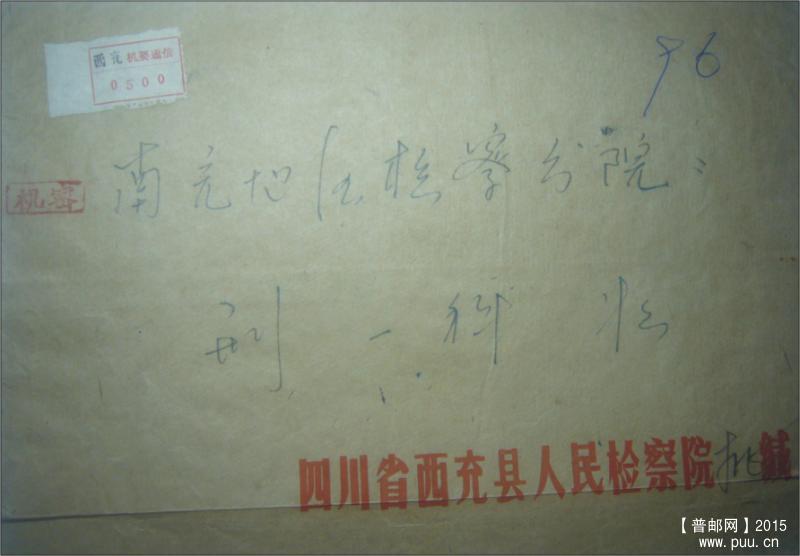 西充机要通信
0500
96
机密
南充地区检察分院:
刑一科收
四川省西充县人民检察院 缄
【普邮网】2015
www.puu.cn